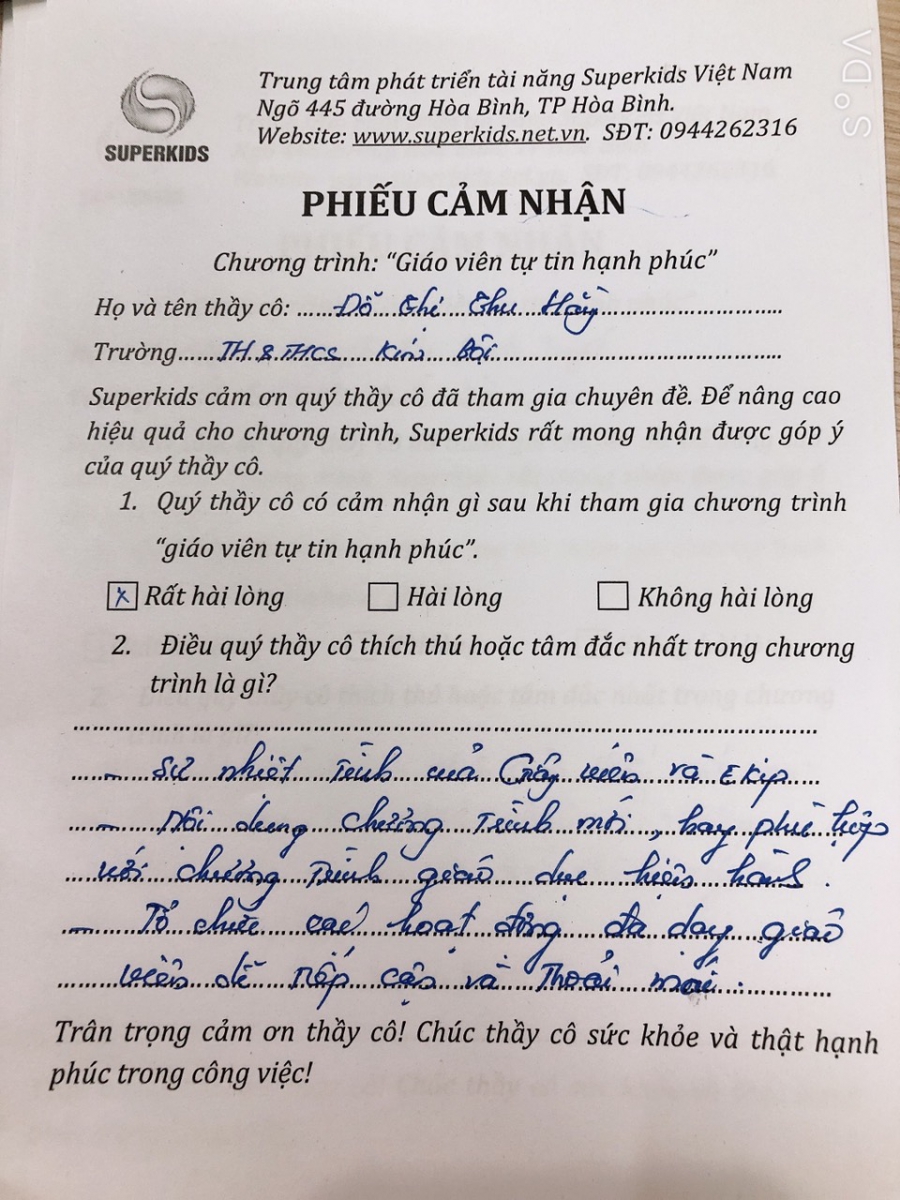 SUPERKIDS
Trung tâm phát triển tài năng Superkids Việt Nam
Ngõ 445 đường Hòa Bình, TP Hòa Bình.
Website: www.superkids.net.vn. SĐT: 0944262316
SODA
PHIẾU CẢM NHẬN
Chương trình: “Giáo viên tự tin hạnh phúc”
Họ và tên thầy cô: ......Đỗ Thị Thu Hằng..............................
Trường......TH & THCS Kim Bôi..............................
Superkids cảm ơn quý thầy cô đã tham gia chuyên đề. Để nâng cao
hiệu quả cho chương trình, Superkids rất mong nhận được góp ý
của quý thầy cô.
1. Quý thầy cô có cảm nhận gì sau khi tham gia chương trình
“giáo viên tự tin hạnh phúc”.
x Rất hài lòng Hài lòng Không hài lòng
2. Điều quý thầy cô thích thú hoặc tâm đắc nhất trong chương
trình là gì?
- Sự nhiệt tình của Giảng viên và Ekip
- Nội dung chương trình mới, hay phù hợp
với chương trình giáo dục hiện hành.
- Tổ chức các hoạt động đa dạng giáo
viên dễ tiếp cận và thoải mái.
Trân trọng cảm ơn thầy cô! Chúc thầy cô sức khỏe và thật hạnh
phúc trong công việc!